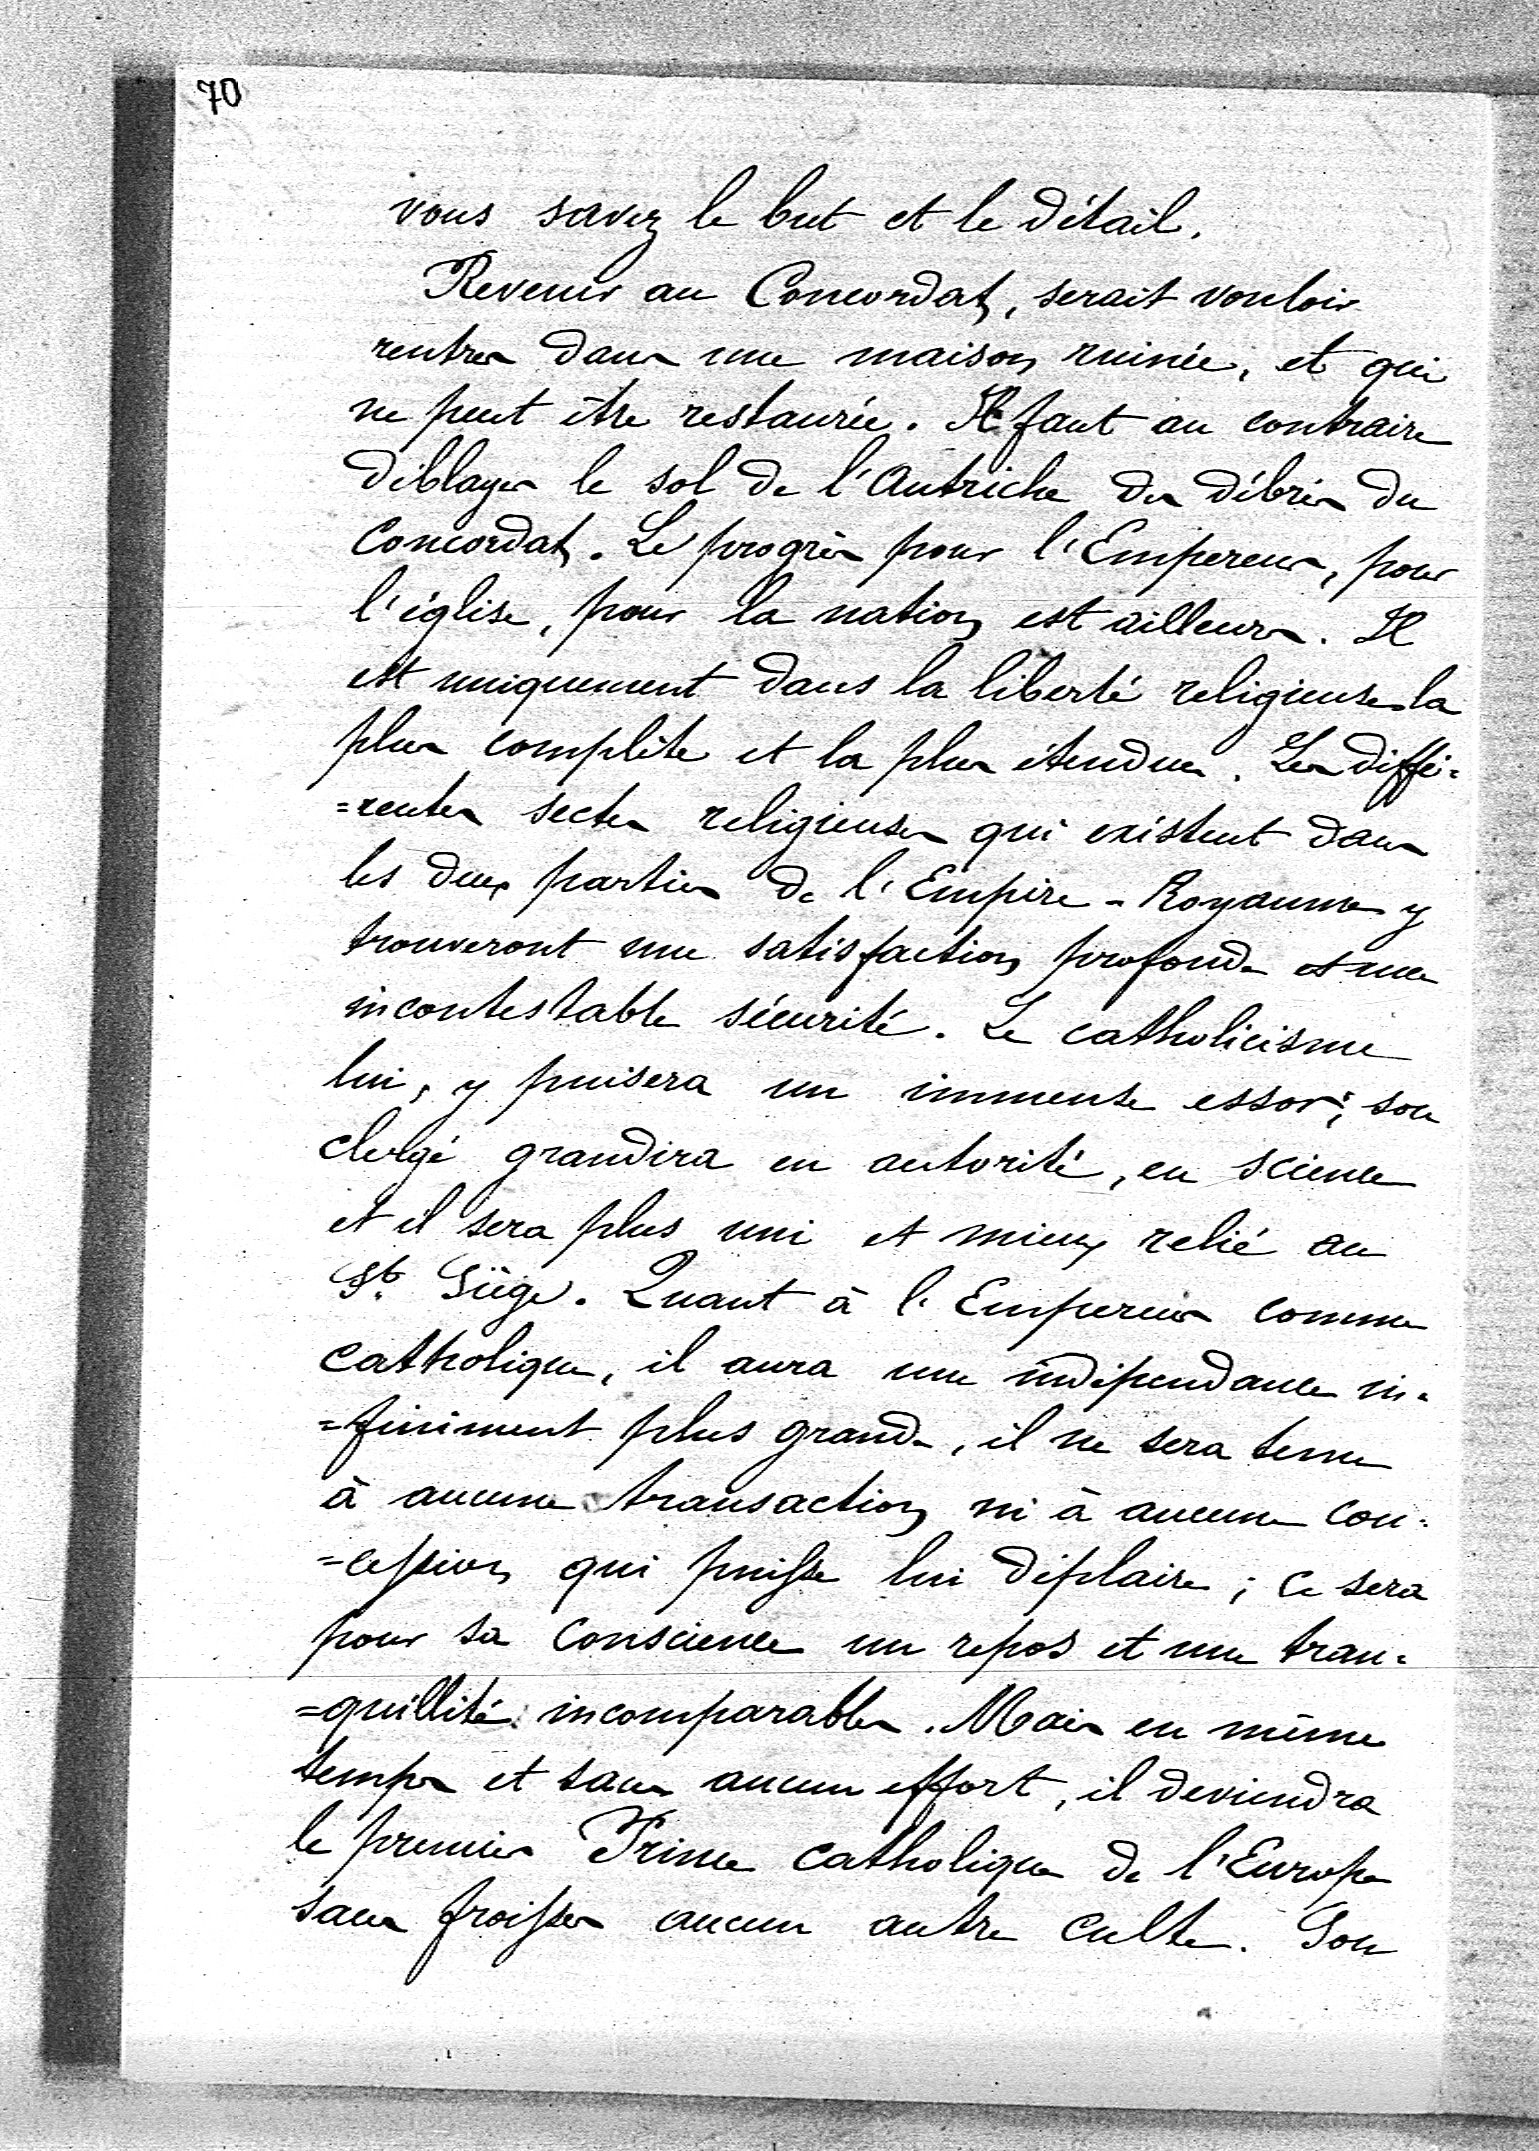 70
vous savez le but et le détail.
Revenir au Concordat, serait vouloir
rentrer dans une maison ruinée, et qui
ne peut être restaurée. Il faut au contraire
déblayer le sol de l'Autriche des débris du
Concordat. Le progrès pour l'Empereur, pour
l'église, pour la nation est ailleurs. Il
est uniquement dans la liberté religieuse la
plus complète et la plus étendue. Les diffé=
=rentes sectes religieuses qui existent dans
les deux parties de l'Empire-Royaume y
trouveront une satisfaction profonde et une
incontestable sécurité. Le catholicisme
lui, y puisera un immense essor; son
clergé grandira en autorité, en science
et il sera plus uni et mieux relié au
St. Siège. Quant à l'Empereur comme
catholique, il aura une indépendance in=
=finiment plus grande, il ne sera tenu
à aucune transaction ni à aucune con=
=cession qui puisse lui déplaire; ce sera
pour sa conscience un repos et une tran=
=quillité incomparables. Mais en même
temps et sans aucun effort, il deviendra
le premier Prince catholique de l'Europe
sans froisser aucun autre culte. Son